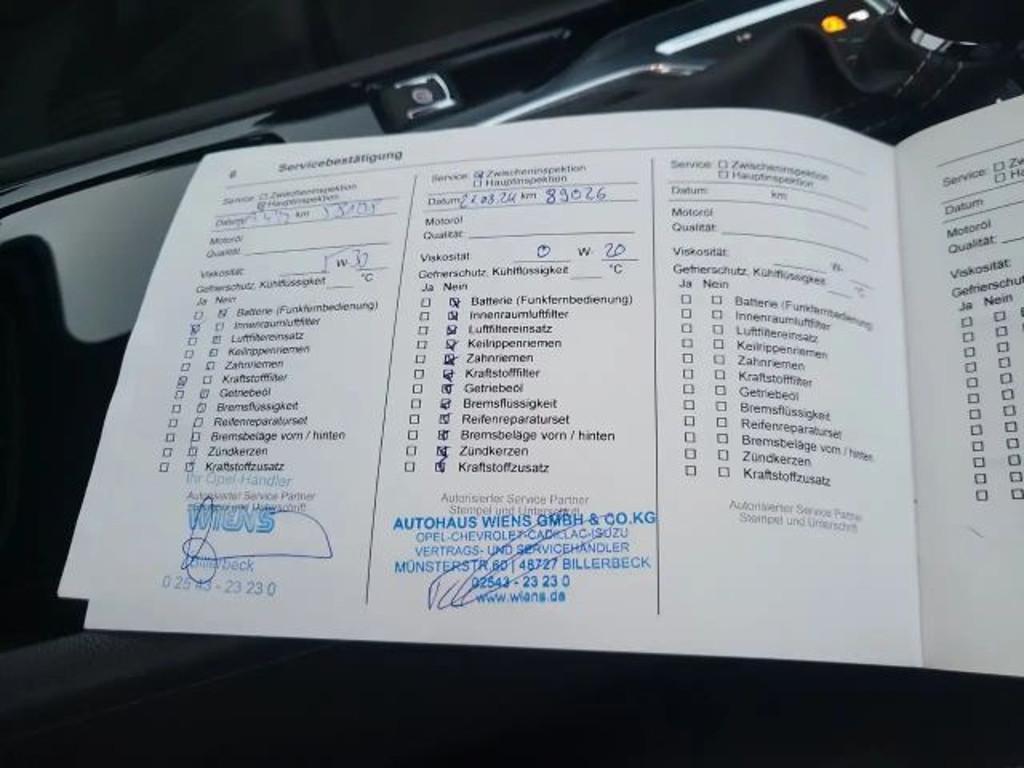 6 Servicebestätigung
Service: Zwischeninspektion
Hauptinspektion
Datum km
Motoröl
Qualität:
Viskosität: 5 W- 30
Gefrierschutz, Kühlflüssigkeit °C
Ja Nein
Batterie (Funkfernbedienung)
Innenraumluftfilter
Luftfiltereinsatz
Keilrippenriemen
Zahnriemen
Kraftstofffilter
Getriebeöl
Bremsflüssigkeit
Reifenreparaturset
Bremsbeläge vorn / hinten
Zündkerzen
Kraftstoffzusatz
Ihr Opel-Händler
Autorisierter Service Partner
Stempel und Unterschrift
WIENS
Billerbeck
0 25 43 - 23 23 0
Service: Zwischeninspektion
Hauptinspektion
Datum: km 89026
Motoröl
Qualität:
Viskosität: 0 W- 20
Gefrierschutz, Kühlflüssigkeit °C
Ja Nein
Batterie (Funkfernbedienung)
Innenraumluftfilter
Luftfiltereinsatz
Keilrippenriemen
Zahnriemen
Kraftstofffilter
Getriebeöl
Bremsflüssigkeit
Reifenreparaturset
Bremsbeläge vorn / hinten
Zündkerzen
Kraftstoffzusatz
Autorisierter Service Partner
Stempel und Unterschrift
AUTOHAUS WIENS GMBH & CO.KG
OPEL-CHEVROLET-CADILLAC-ISUZU
VERTRAGS- UND SERVICEHÄNDLER
MÜNSTERSTR.60 | 48727 BILLERBECK
02543 - 23 23 0
www.wiens.de
Service: Zwischeninspektion
Hauptinspektion
Datum: km
Motoröl
Qualität:
Viskosität: W-
Gefrierschutz, Kühlflüssigkeit °C
Ja Nein
Batterie (Funkfernbedienung)
Innenraumluftfilter
Luftfiltereinsatz
Keilrippenriemen
Zahnriemen
Kraftstofffilter
Getriebeöl
Bremsflüssigkeit
Reifenreparaturset
Bremsbeläge vorn / hinten
Zündkerzen
Kraftstoffzusatz
Autorisierter Service Partner
Stempel und Unterschrift
Service:
Datum
Motoröl
Qualität:
Viskosität:
Ja Nein